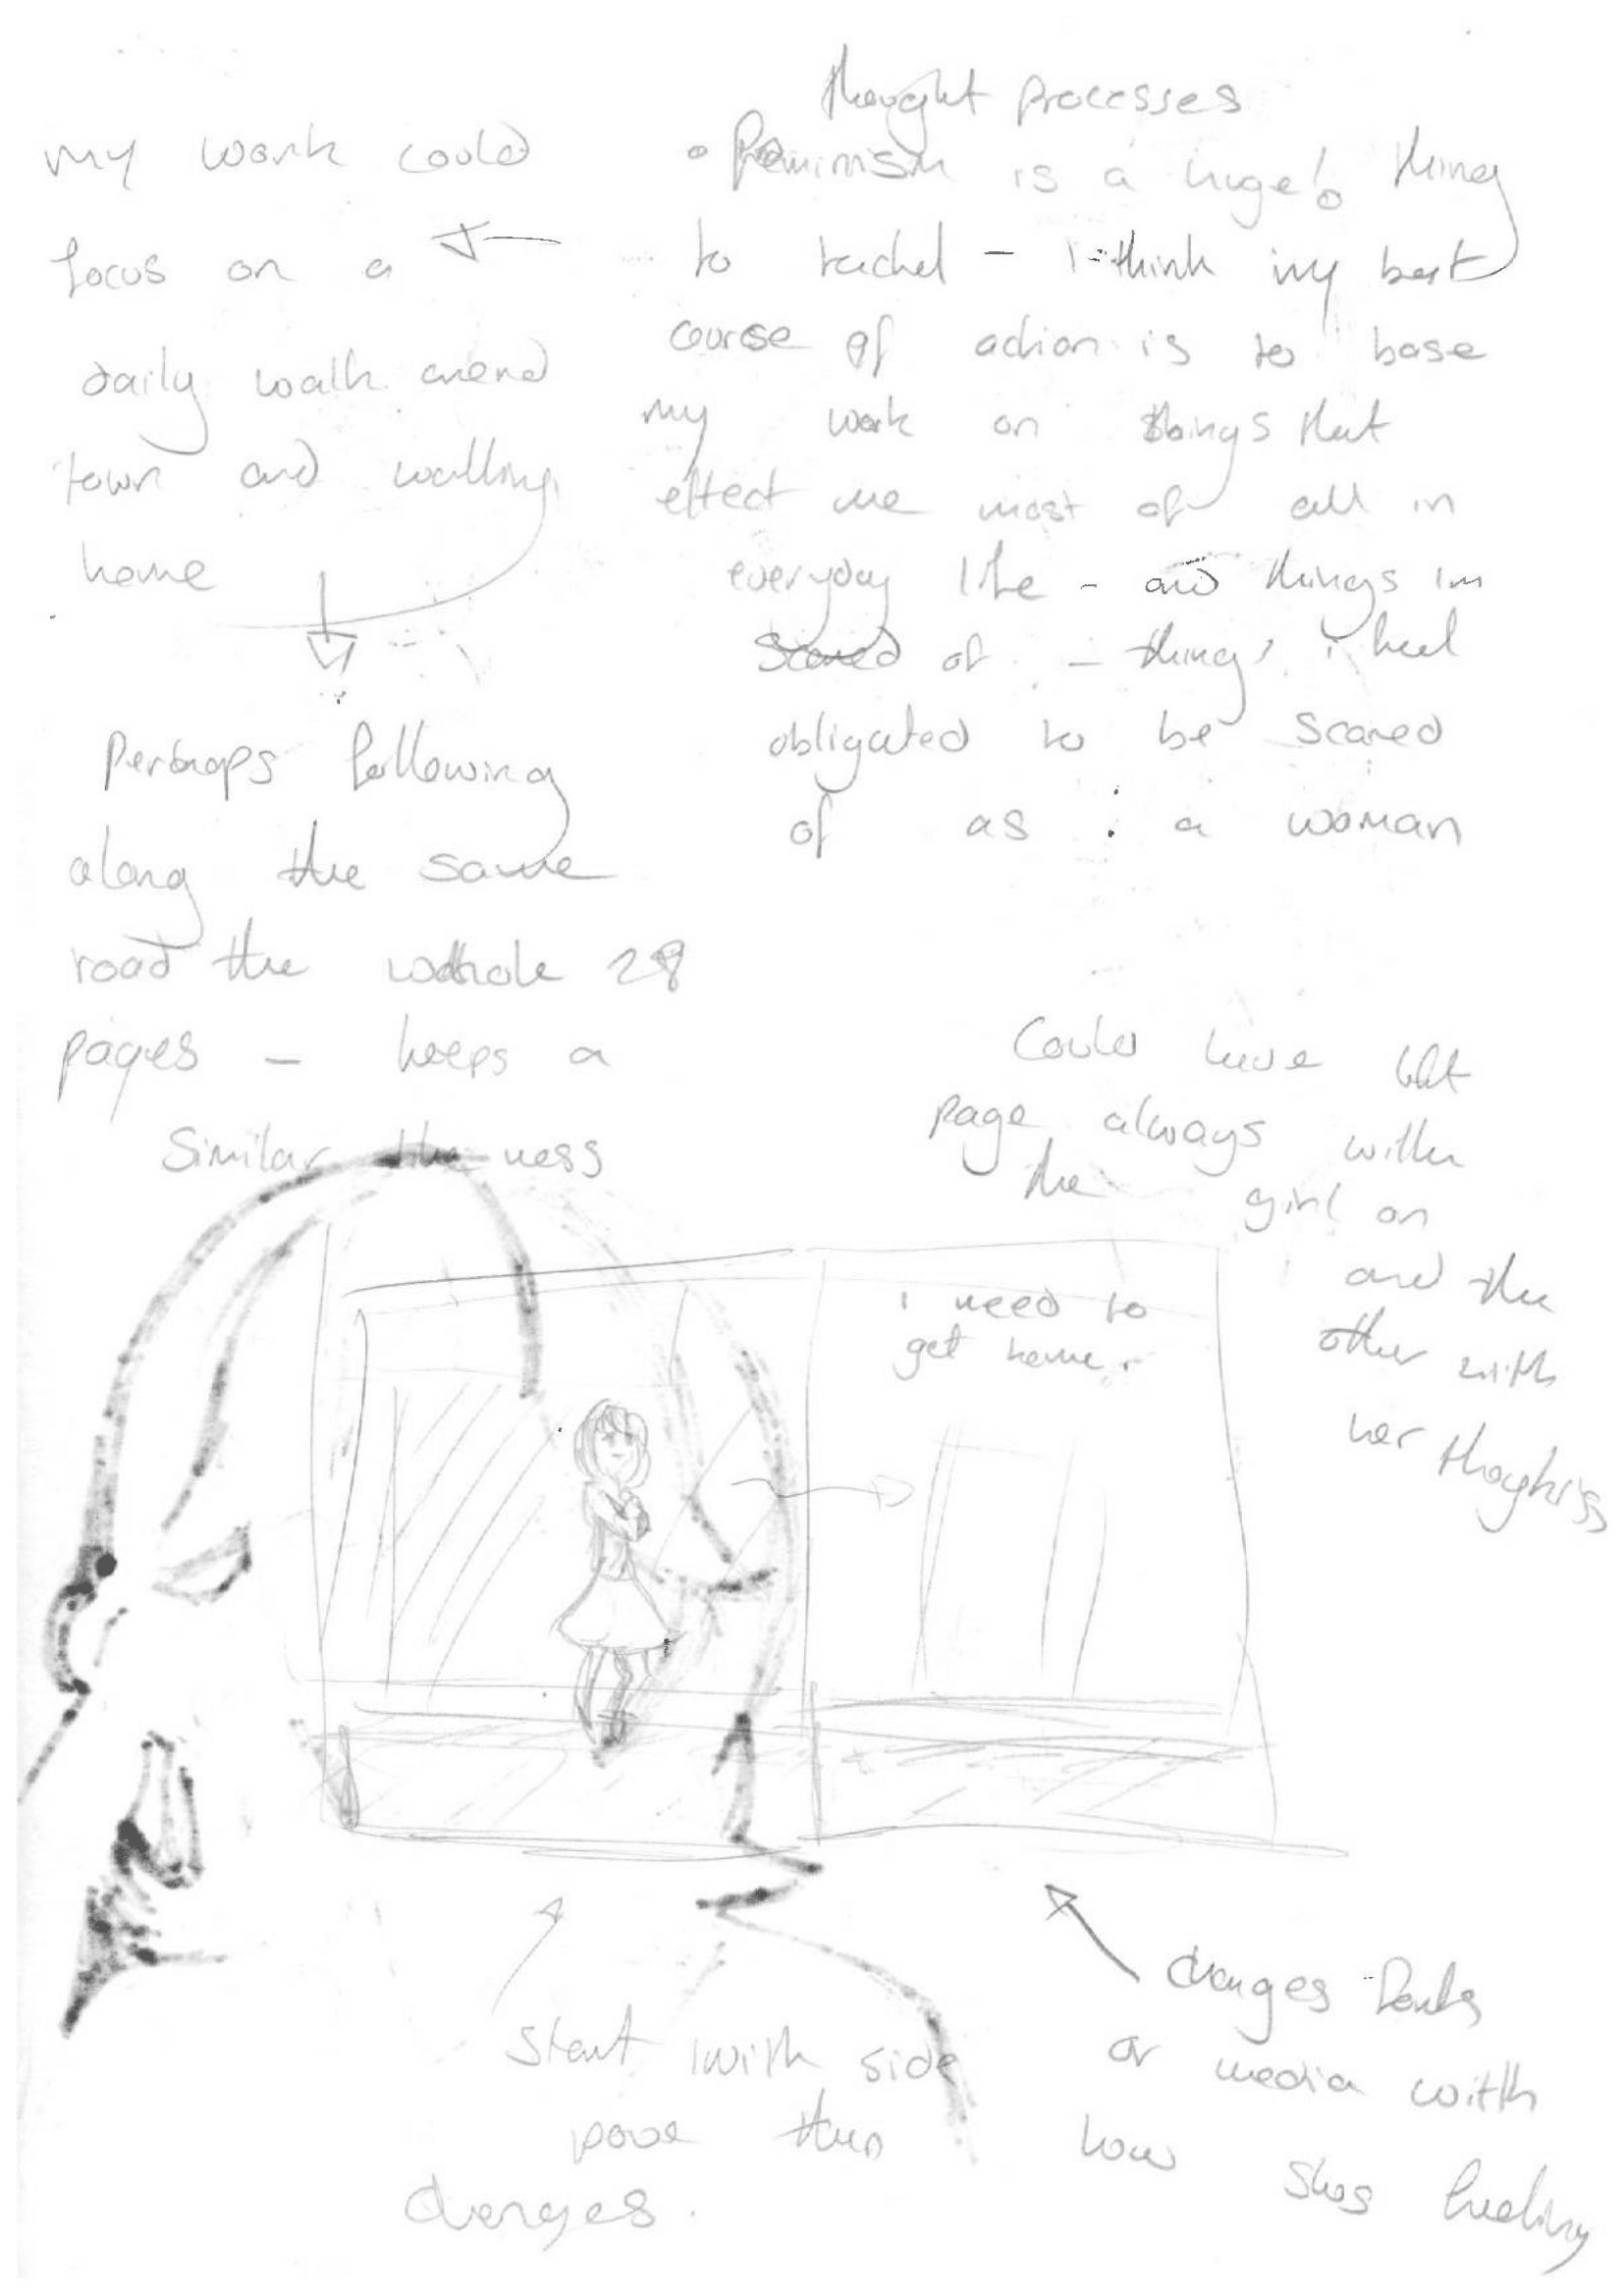 thought processes
• feminism is a huge! thing
to rachel - i think my best
course of action is to base
my work on things that
effect me most of all in
everyday life - and things im
scared of - things i feel
obligated to be scared
of as a woman
my work could
focus on a
daily walk around
town and walking
home
Perhaps following
along the same
road the whole 28
pages - keeps a
Similar the ness
Could have left
page always with
the girl on
and the
other with
her thoughts
i need to
get home.
Start with side
pose then
changes.
changes fonts
or media with
how shes feeling